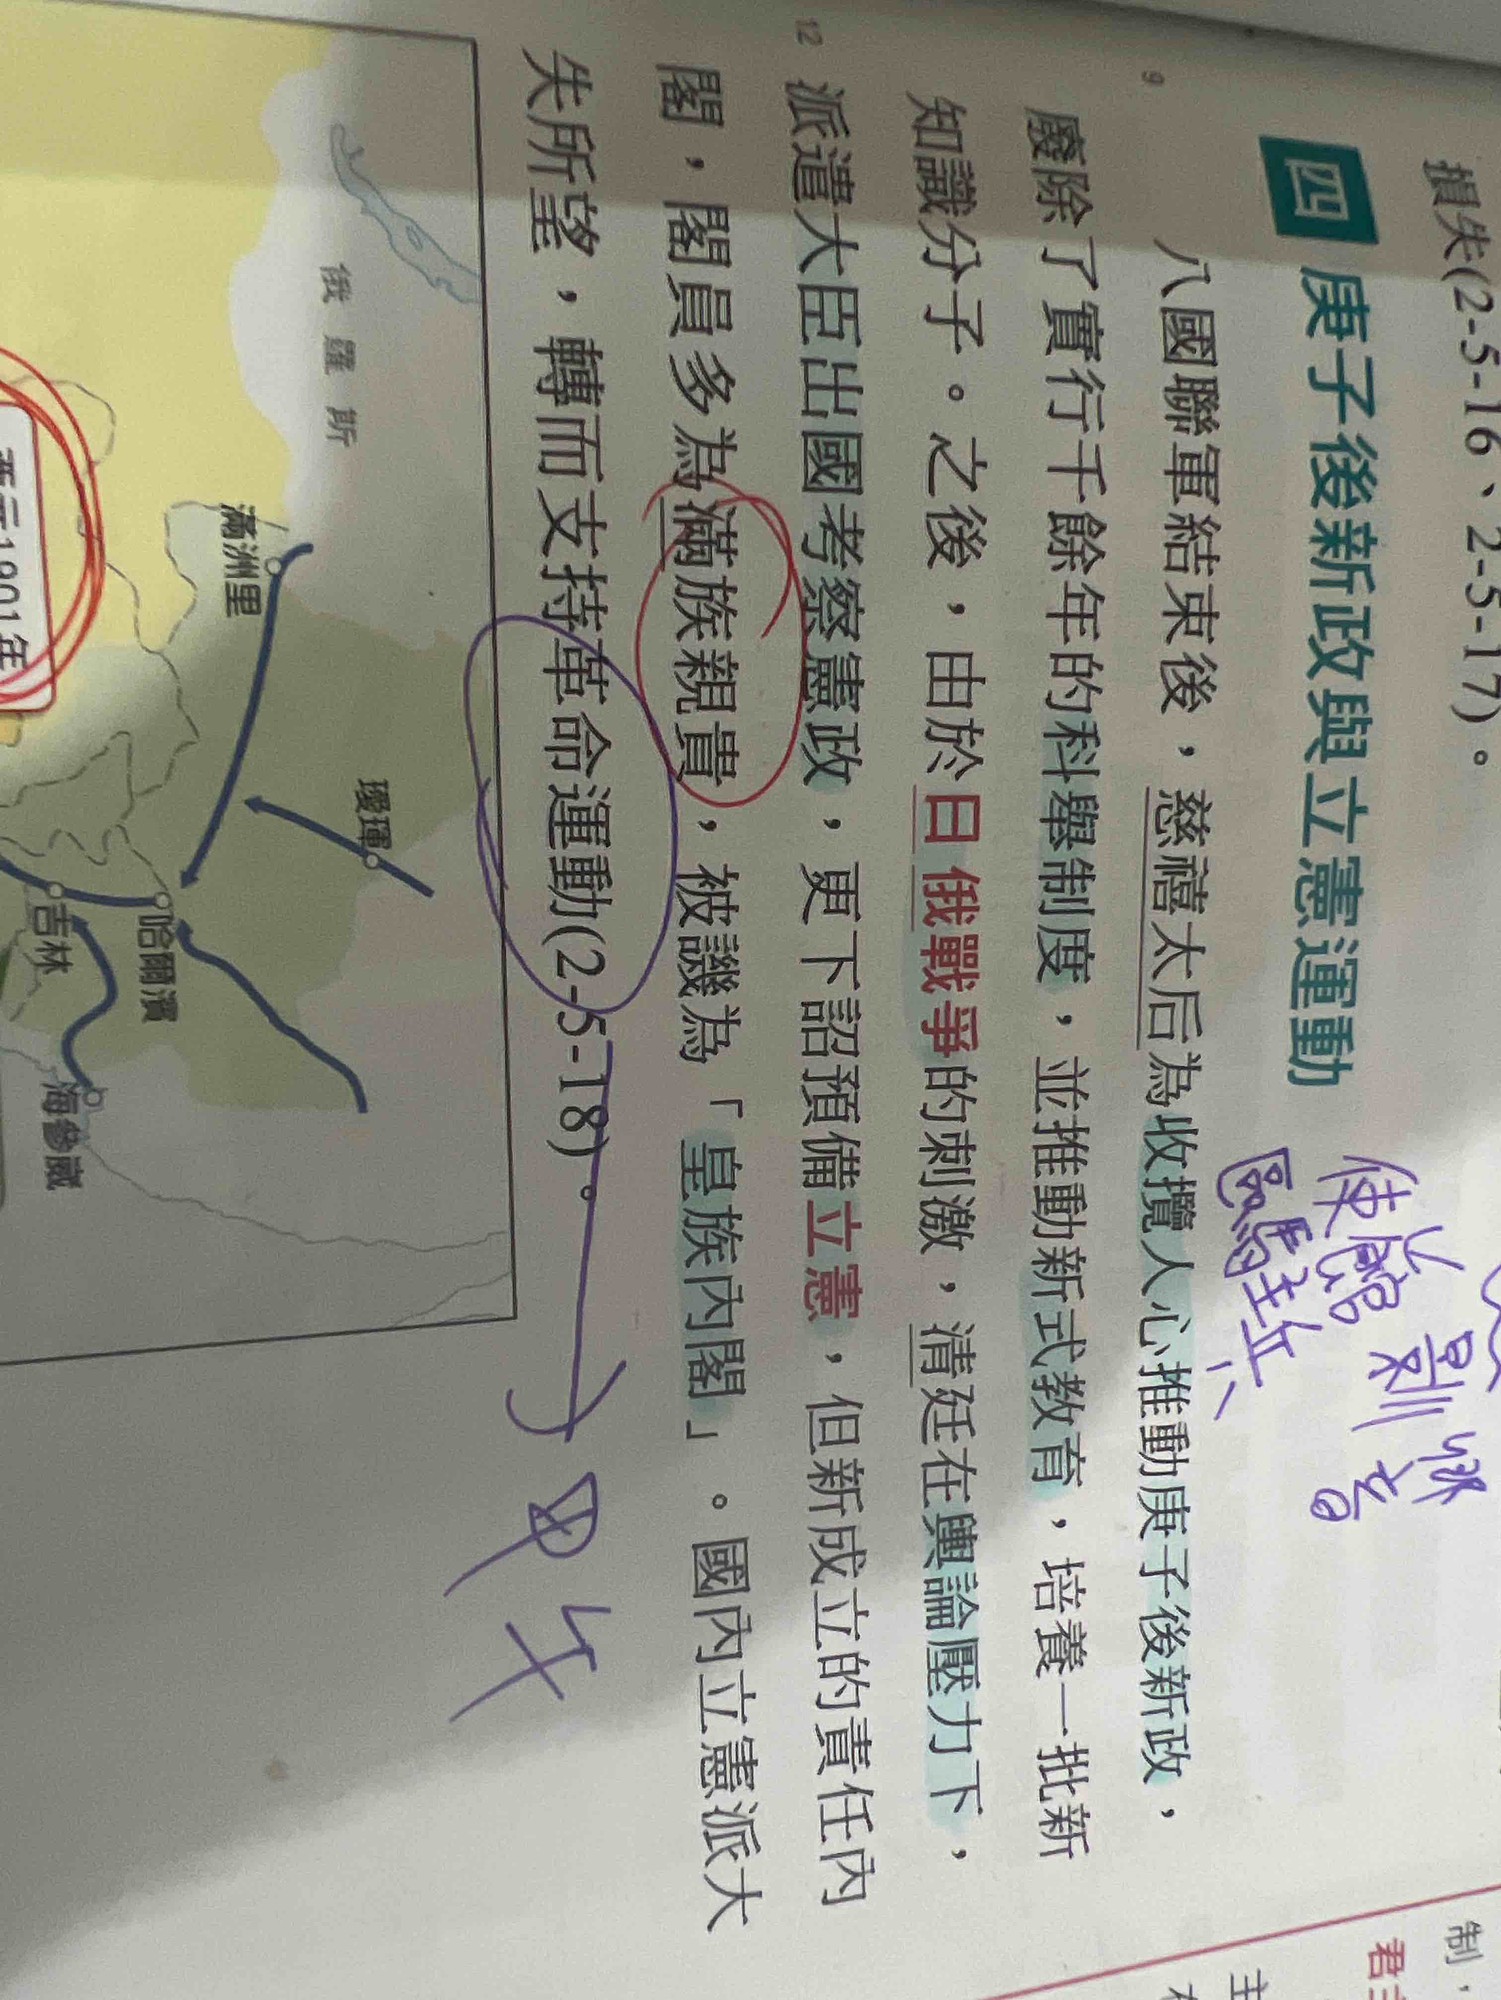 損失(2-5-16、2-5-17)。
四 庚子後新政與立憲運動
八國聯軍結束後，慈禧太后為收攬人心推動庚子後新政，
廢除了實行千餘年的科舉制度，並推動新式教育，培養一批新
知識分子。之後，由於日俄戰爭的刺激，清廷在輿論壓力下，
派遣大臣出國考察憲政，更下詔預備立憲，但新成立的責任內
閣，閣員多為滿族親貴，被譏為「皇族內閣」。國內立憲派大
失所望，轉而支持革命運動(2-5-18)。
9
12
使館
區駐兵
俄羅斯
滿洲里
璦琿
哈爾濱
吉林
海參崴
西元1901年
制，